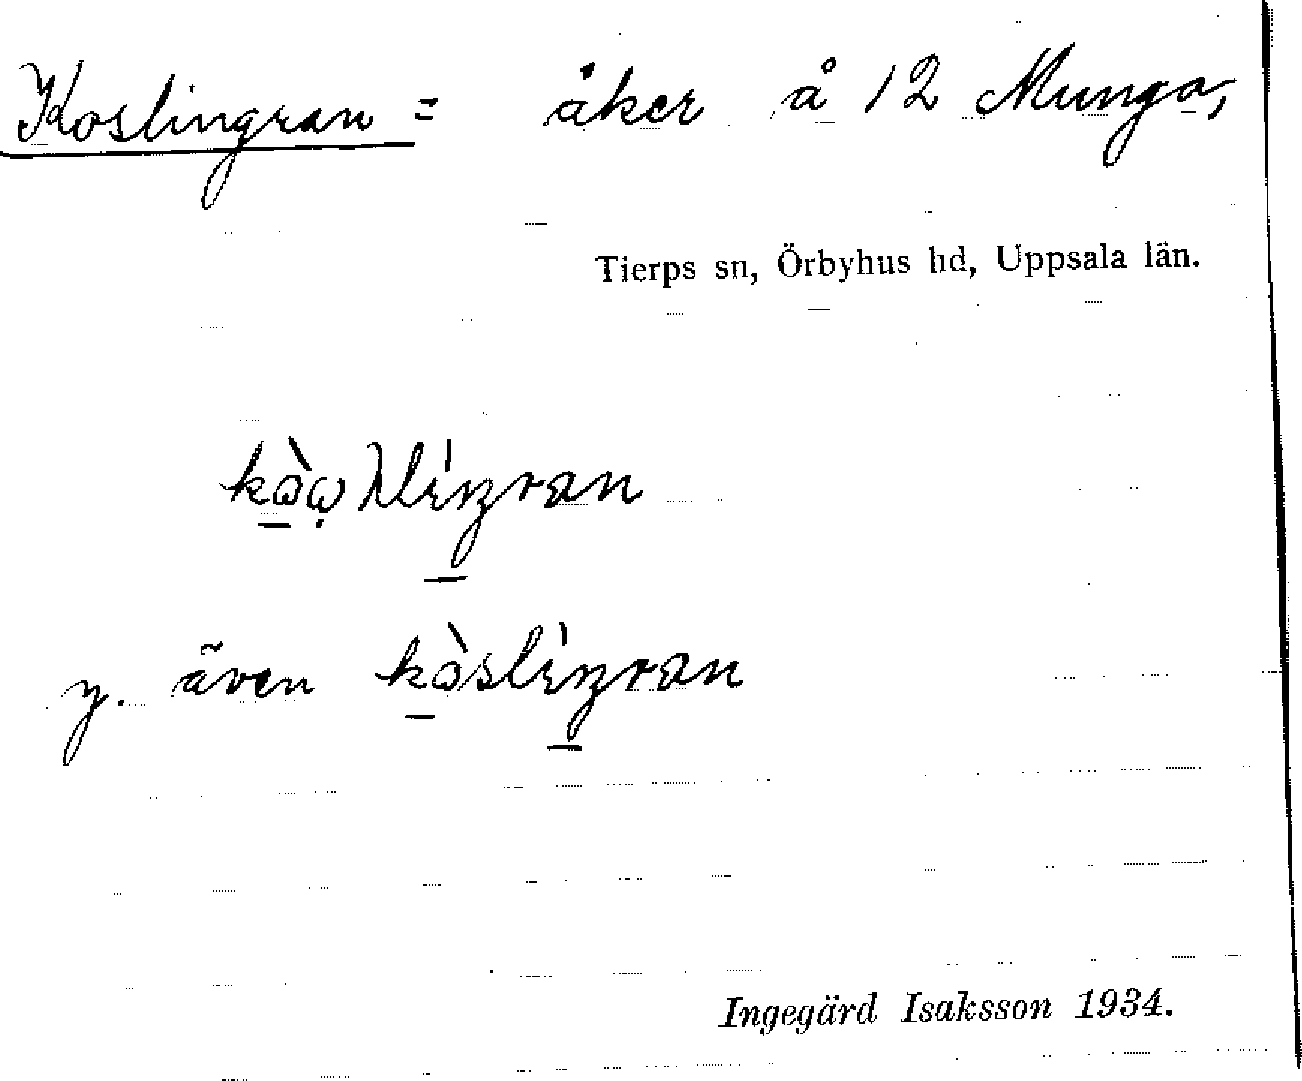 Koslingran = åker å 12 Munga,
Tierps sn, Örbyhus hd, Uppsala län.
y. även
Ingegärd Isaksson 1934.